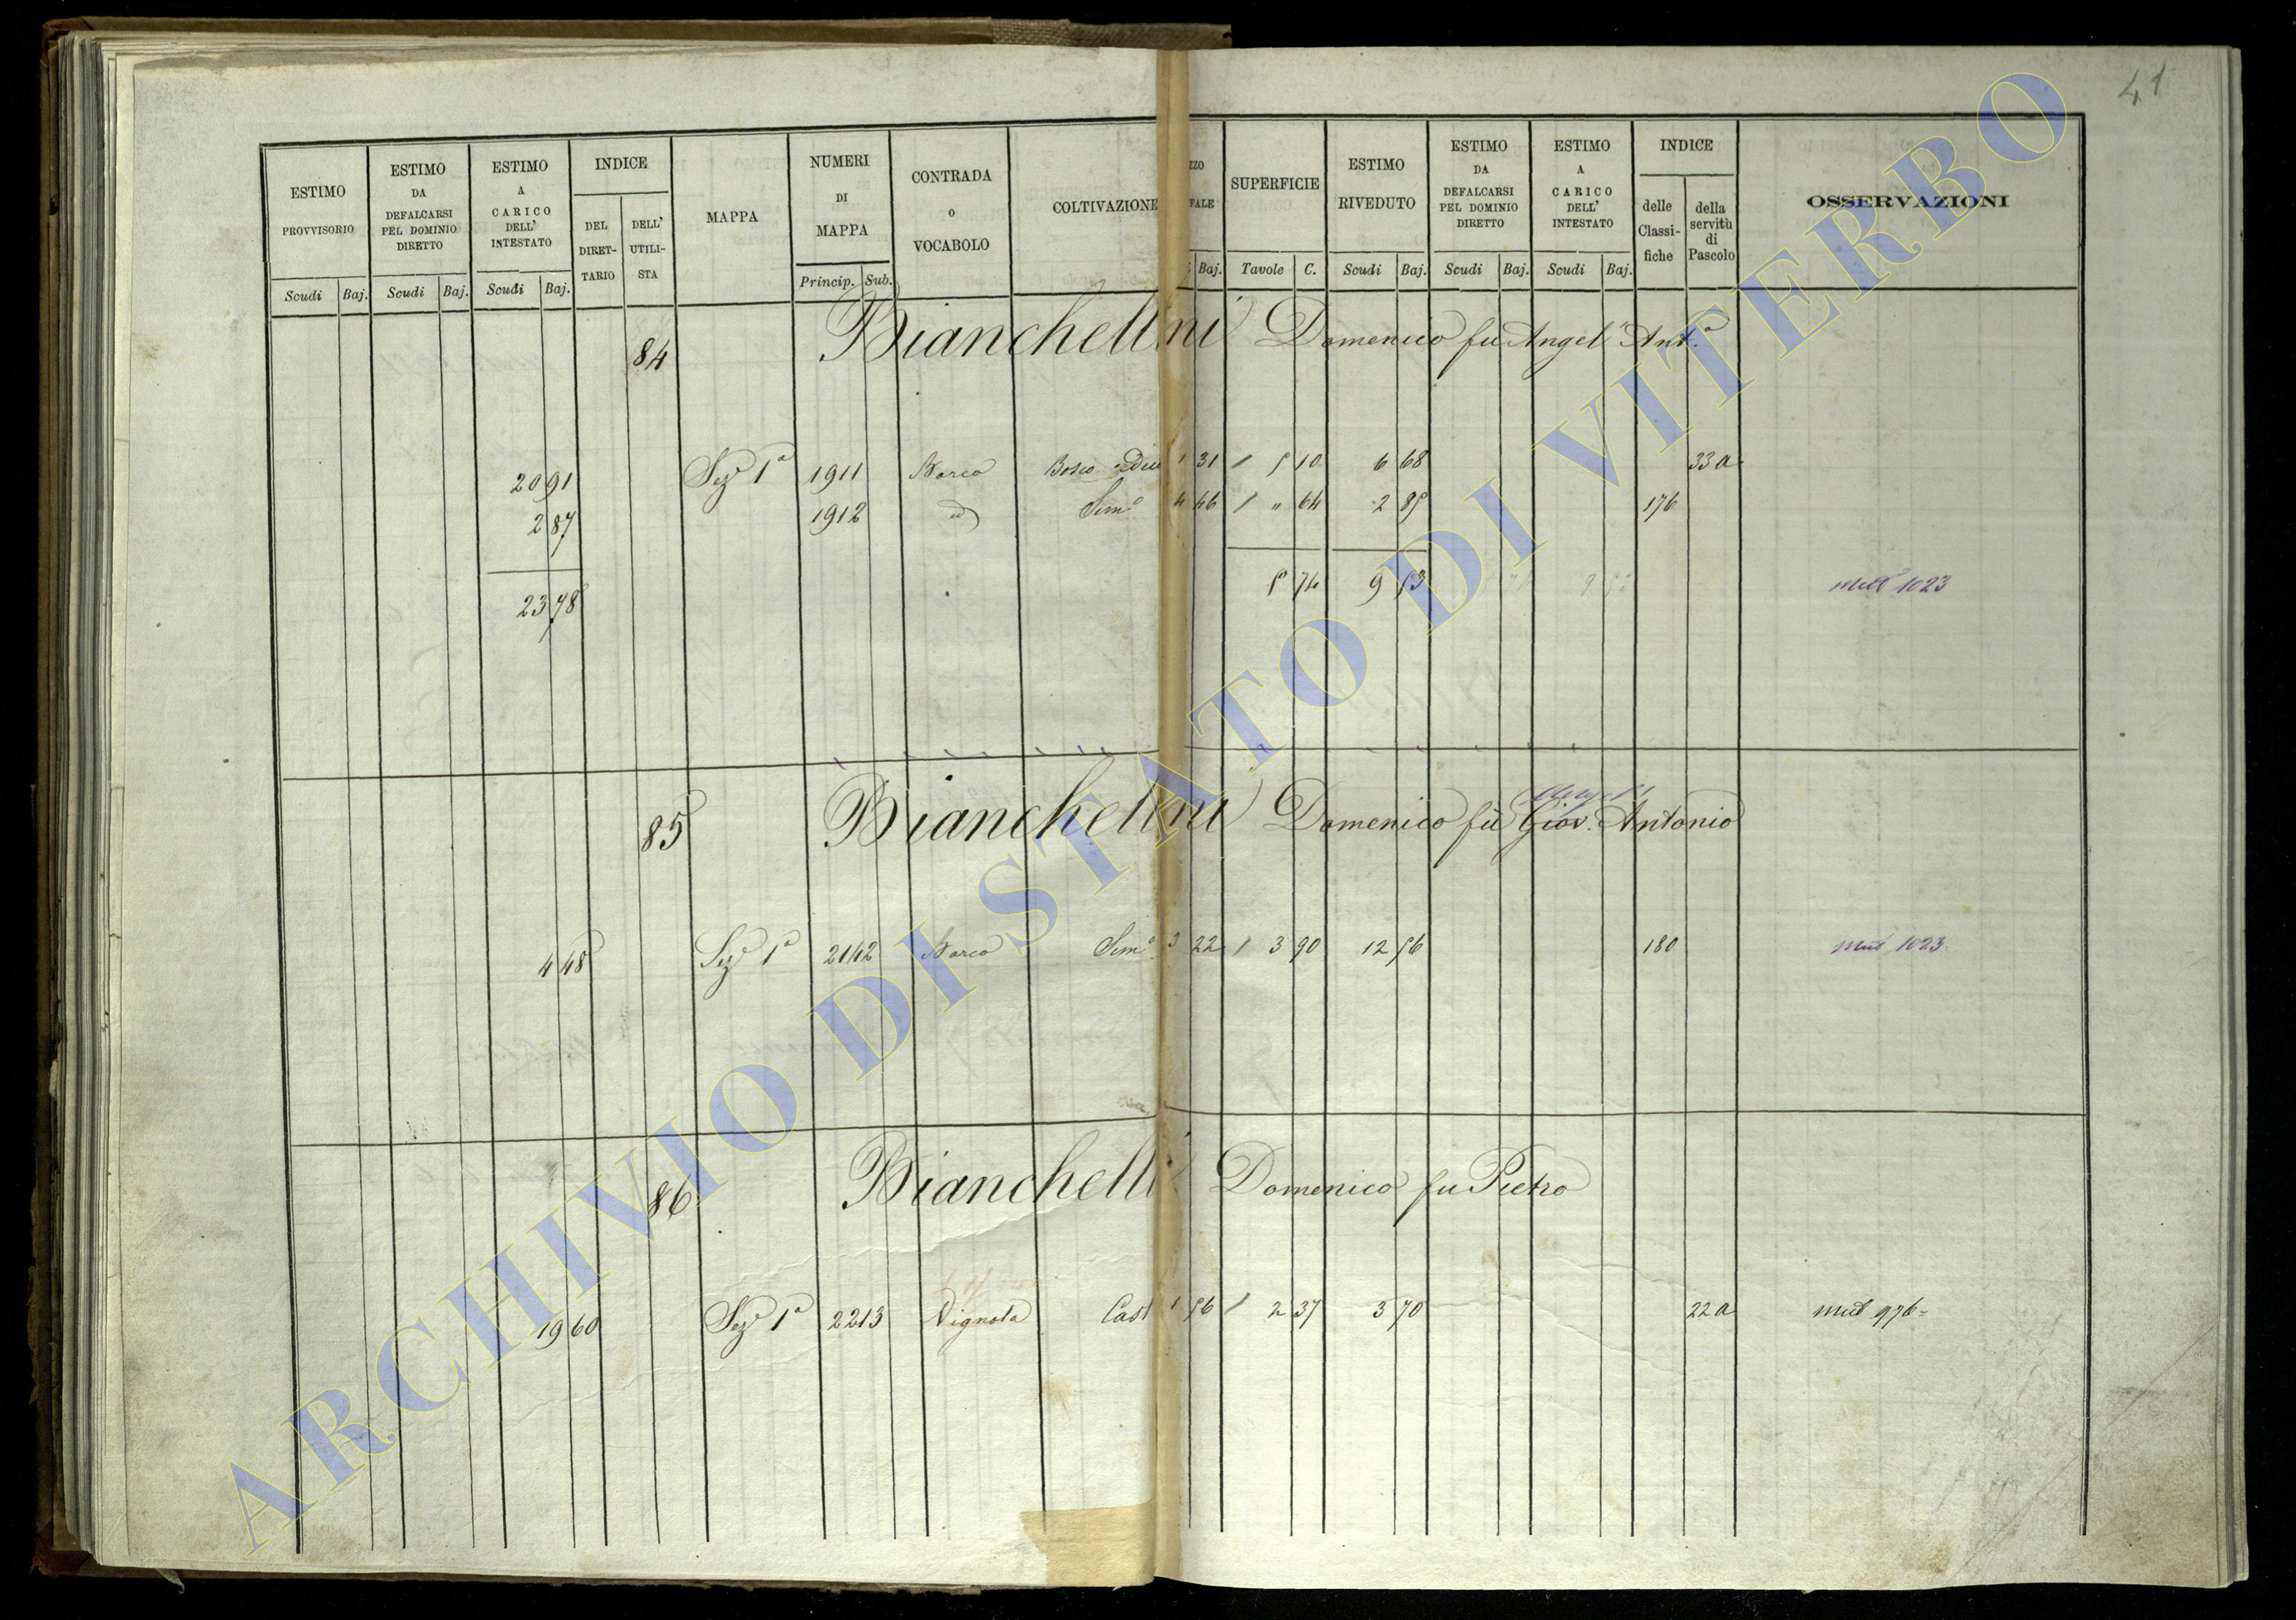 41
ESTIMO PROVVISORIO Scudi Baj.
ESTIMO DA DEFALCARSI PEL DOMINIO DIRETTO Scudi Baj.
ESTIMO A CARICO DELL' INTESTATO Scudi Baj.
INDICE DEL DIRET-TARIO DELL' UTILI-STA
MAPPA
NUMERI DI MAPPA Princip. Sub.
CONTRADA O VOCABOLO
COLTIVAZIONE
ZZO FALE Baj.
SUPERFICIE Tavole C.
ESTIMO RIVEDUTO Scudi Baj.
ESTIMO DA DEFALCARSI PEL DOMINIO DIRETTO Scudi Baj.
ESTIMO A CARICO DELL' INTESTATO Scudi Baj.
INDICE delle Classi-fiche della servitù di Pascolo
OSSERVAZIONI
84 Bianchellini Domenico fu Angel' Ant.º
20 91 Sezº 1ª 1911 Barco Bosco 1 31 / 5 10 6 68 33 a
2 87 1912 id Semº 4 46 / " 64 2 85 176
23 78 5 74 9 53 mutº 1023
85 Bianchellini Domenico fu Giov. Antonio
4 48 Sezº 1ª 2142 Barco Semº 3 22 / 3 90 12 56 180 mutº 1023
86 Bianchelli Domenico fu Pietro
19 60 Sezº 1ª 2213 Vignola Cast 1 56 / 2 37 3 70 22 a mutº 976=
ARCHIVIO DI STATO DI VITERBO